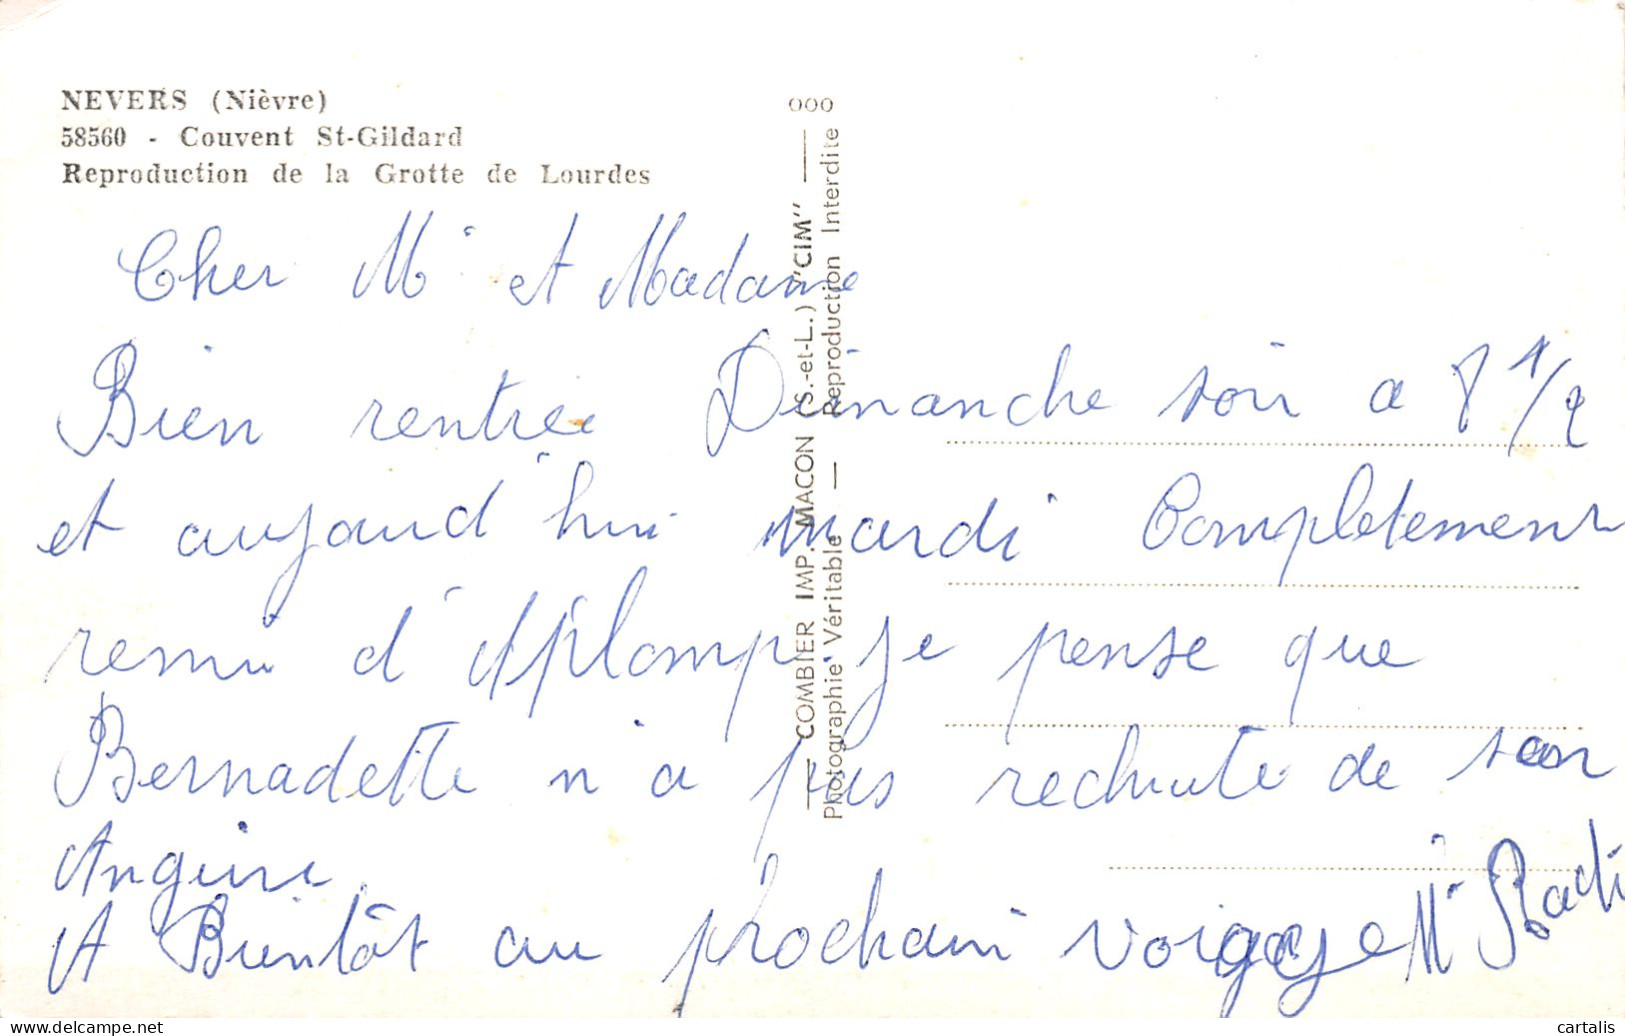 NEVERS (Nièvre)
58560 - Couvent St-Gildard
Reproduction de la Grotte de Lourdes
000
COMBIER IMP. MACON (S.-et-L.) "CIM"
Photographie Véritable — Reproduction Interdite
Cher Mr et Madame
Bien rentree Dimanche soir a 8 1/2
et aujourd'hui mardi Completement
remi d'Aplomp. je pense que
Bernadette n'a pas rechute de son
Angine
A Bientôt au prochain voigage Mr
delcampe.net
cartalis